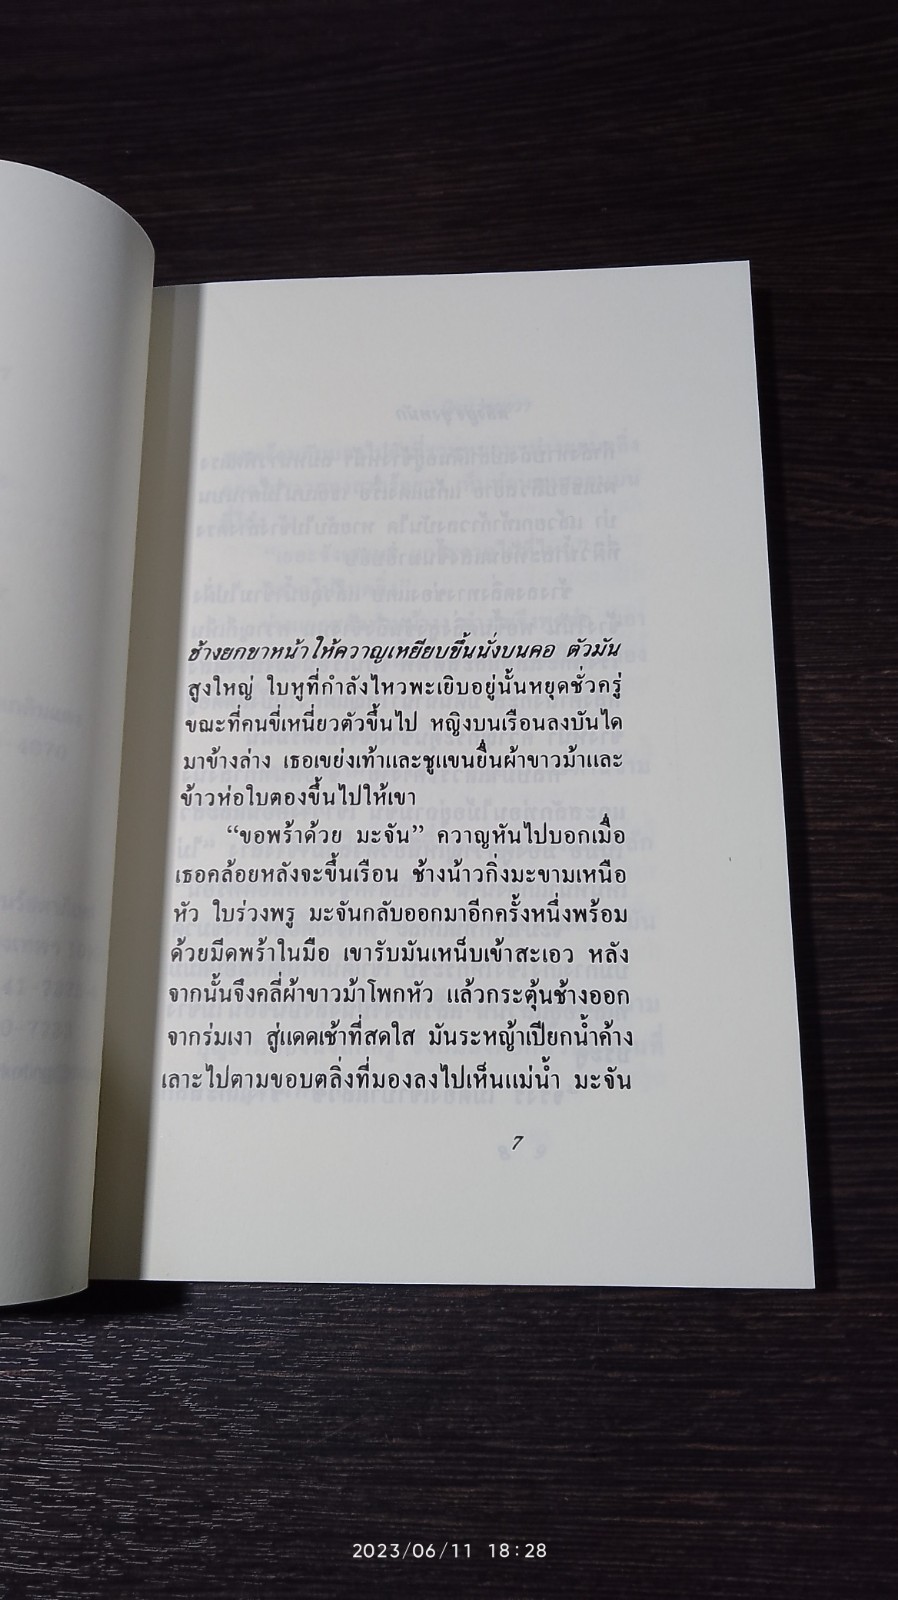 ช้างยกขาหน้าให้ควาญเหยียบขึ้นนั่งบนคอ ตัวมัน
สูงใหญ่ ใบหูที่กำลังไหวพะเยิบอยู่นั้นหยุดชั่วครู่
ขณะที่คนขี่เหนี่ยวตัวขึ้นไป หญิงบนเรือนลงบันได
มาข้างล่าง เธอเขย่งเท้าและชูแขนยื่นผ้าขาวม้าและ
ข้าวห่อใบตองขึ้นไปให้เขา
“ขอพร้าด้วย มะจัน” ควาญหันไปบอกเมื่อ
เธอคล้อยหลังจะขึ้นเรือน ช้างน้าวกิ่งมะขามเหนือ
หัว ใบร่วงพรู มะจันกลับออกมาอีกครั้งหนึ่งพร้อม
ด้วยมีดพร้าในมือ เขารับมันเหน็บเข้าสะเอว หลัง
จากนั้นจึงคลี่ผ้าขาวม้าโพกหัว แล้วกระตุ้นช้างออก
จากร่มเงา สู่แดดเช้าที่สดใส มันระหญ้าเปียกน้ำค้าง
เลาะไปตามขอบตลิ่งที่มองลงไปเห็นแม่น้ำ มะจัน
7
2023/06/11 18:28